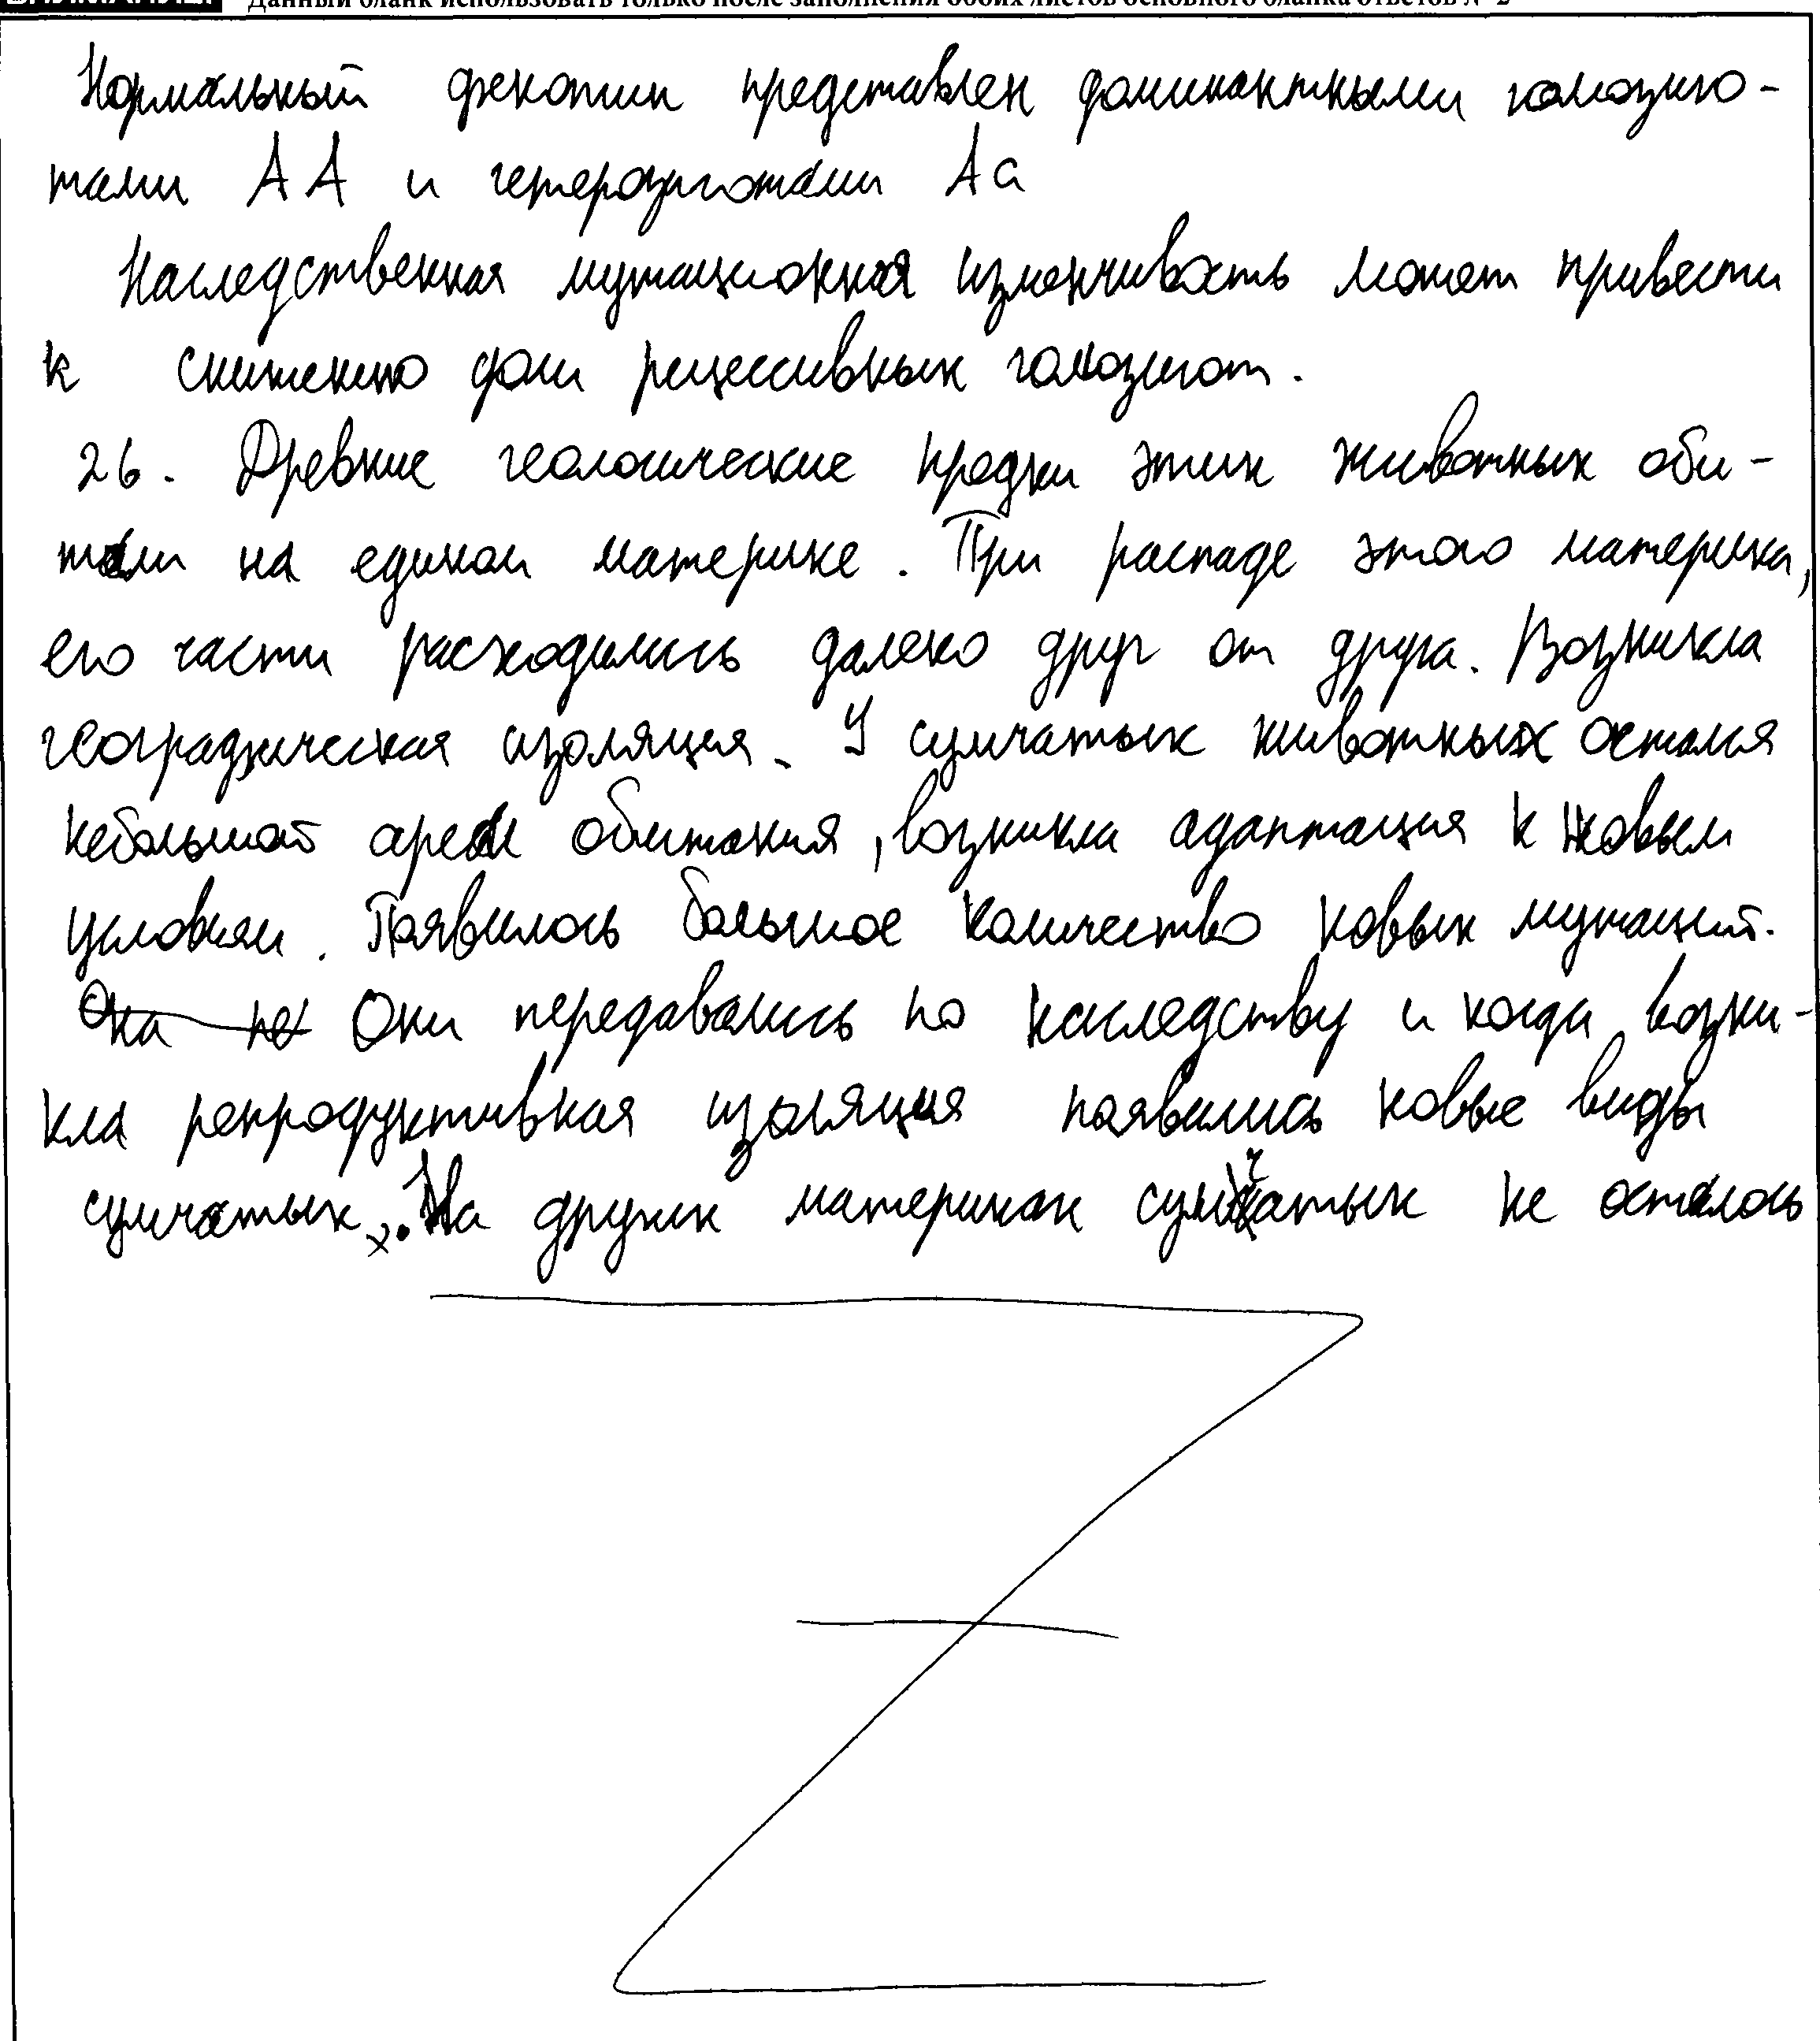 Данный бланк использовать только после заполнения обоих листов основного бланка ответов № 2
Нормальный фенотип представлен доминантными гомозиго-
тами АА и гетерозиготами Аа
Наследственная мутационная изменчивость может привести
к снижению доли рецессивных гомозигот.
26. Древние геологические предки этих животных оби-
тали на едином материке. При распаде этого материка,
его части расходились далеко друг от друга. Возникла
географическая изоляция. У сумчатых животных остался
небольшой ареал обитания, возникла адаптация к новым
условиям. Появилось большое количество новых мутаций.
Она пе Они передавались по наследству и когда возни-
кла репродуктивная изоляция появились новые виды
сумчатых. На других материках сумчатых не осталось